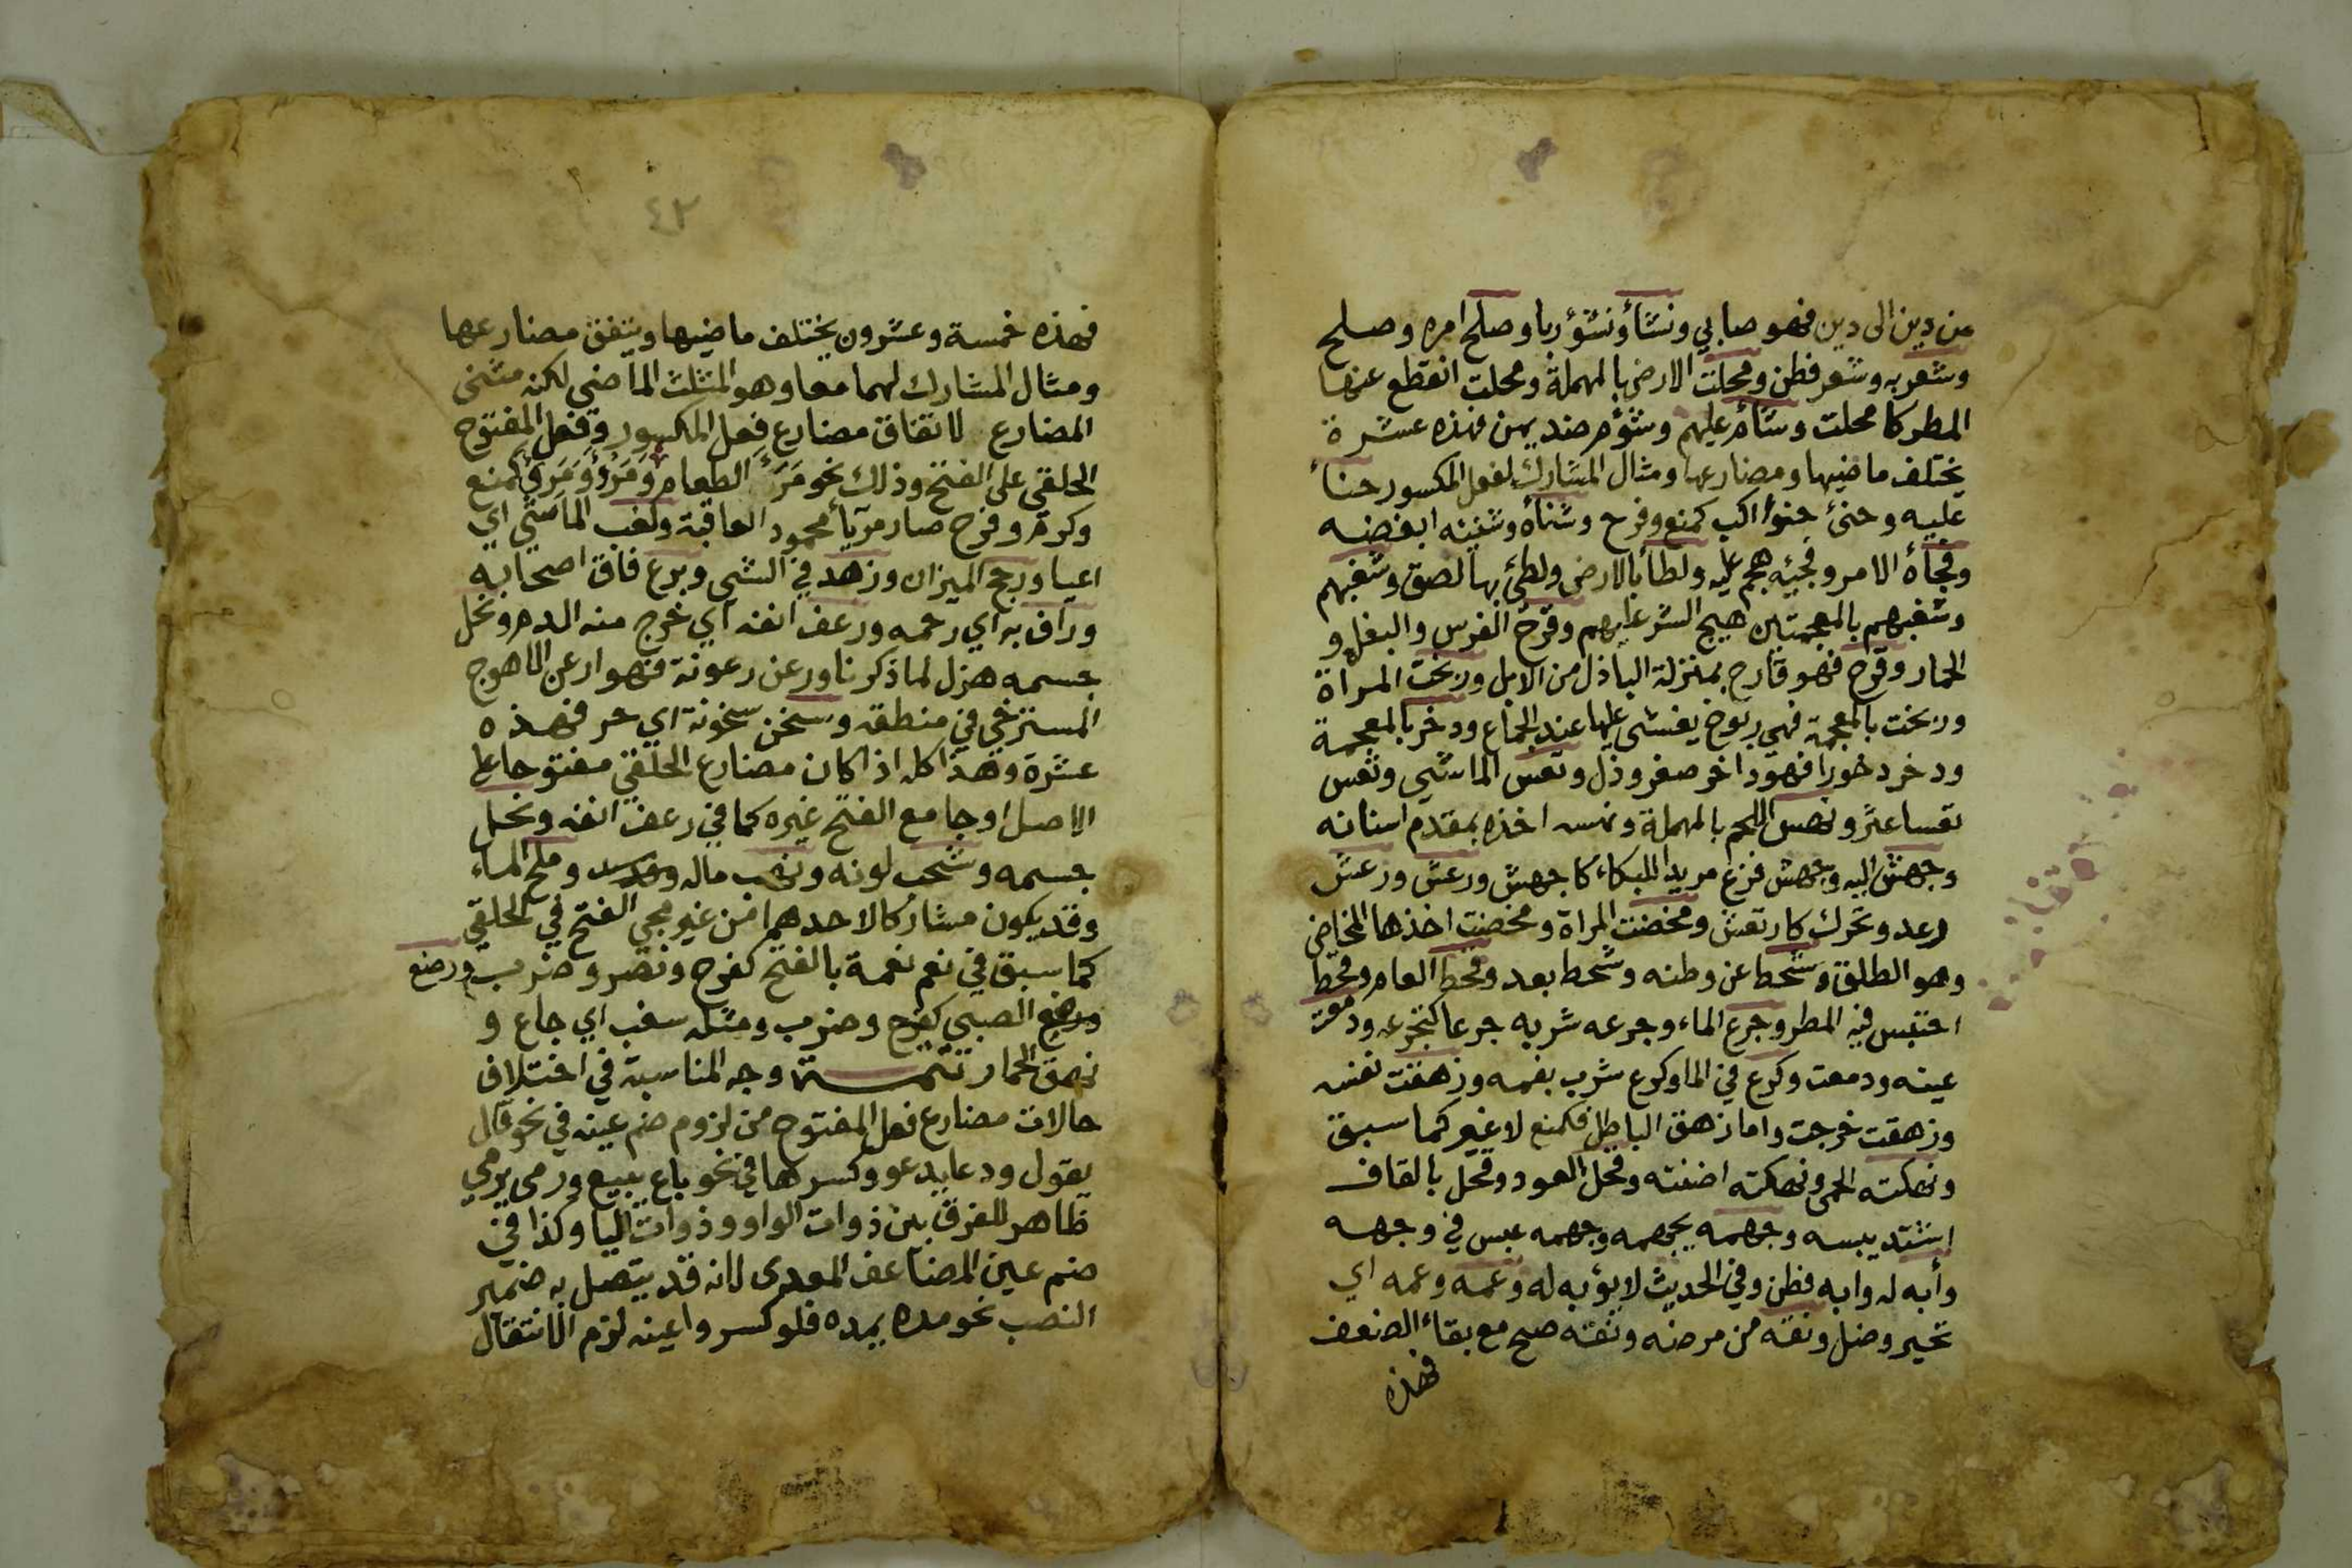 من دين الى دين فهو صابي ونشأ ونشؤ ربا وصلح امره وصلح
وشعر به وشعر فطن ومحلت الارض بالمهملة ومحلت انقطع عنها
المطر كامحلت وشأم عليهم وشؤم ضد يمن فهذه عشرة
يختلف ماضيها ومضارعها ومثال المشارك لفعل المكسور حنأ
عليه وحنئ حنوأ اكب كمنع وفرح وشنأه وشنئه ابغضه
وفجأه الامر وفجئه هجم عليه ولطأ بالارض ولطئ بها لصق وشغبهم
وشغبهم بالمعجمتين هيج الشر عليهم وقرح الفرس والبغل و
الحمار وقرح فهو قارح بمنزلة الباذل من الابل وربخت المراة
وربخت بالمعجمة فهي ربوخ يغشى عليها عند الجماع ودخر بالمعجمة
ودخر دخورا فهو داخر صغر وذل وتعس الماشي وتعس
تعسا عثر ونهس اللحم بالمهملة ونهسه اخذه بمقدم اسنانه
وجهش اليه وجهش فزع مريدا للبكاء كاجهش ورعش ورعش
رعد وتحرك كارتعش ومخضت المراة ومخضت اخذها المخاض
وهو الطلق وشحط عن وطنه وشحط بعد وقحط العام وقحط
احتبس فيه المطر وجرع الماء وجرعه شربه جرعا كتجرعه ودمعت
عينه ودمعت وكرع في الما وكرع شرب بفمه وزهقت نفسه
وزهقت خرجت واما زهق الباطل فكمنع لا غير كما سبق
ونهكته الحمى ونهكته اضنته وقحل العود وقحل بالقاف
اشتد يبسه وجهمه يجهمه وجهمه عبس في وجهه
وأبه له وابه فطن وفي الحديث لا يؤبه له وعمه وعمه اي
تحير وضل ونقه من مرضه ونقه صح مع بقاء الضعف
فهذه
٤٢
فهذه خمسة وعشرون يختلف ماضيها ويتفق مضارعها
ومثال المشارك لهما معا وهو المثلث الماضي لكنه مثنى
المضارع لاتفاق مضارع فعل المكسور وفعل المفتوح
الحلقي على الفتح وذلك نحو مَرَأَ الطعام ومَرُؤَ ومَرِئَ كمنع
وكرم وفرح صار مريأ محمود العاقبة ولغب الماشي اي
اعيا ورجح الميزان وزهد في الشي وبرع فاق اصحابه
وراف به اي رحمه ورعف انفه اي خرج منه الدم ونحل
جسمه هزل لما ذكرنا ورعن رعونة فهو ارعن الاهوج
المسترخي في منطقه وسخن سخونة اي حر فهذه
عشرة وهذا كله اذا كان مضارع الحلقي مفتوحا على
الاصل او جامع الفتح غيره كما في رعف انفه ونحل
جسمه وشحب لونه ونهب ماله وملح الماء
وقد يكون مشاركا لاحدهما من غير مجي الفتح في الحلقي
كما سبق في نعم نعمة بالفتح كفرح ونصر وضرب ورضع
ورضع الصبي كفرح وضرب ومثله سغب اي جاع و
نهق الحمار تتمـــة وجه المناسبة في اختلاف
حالات مضارع فعل المفتوح من لزوم ضم عينه في نحو قال
يقول ودعا يدعو وكسرها في نحو باع يبيع ورمى يرمي
ظاهر للفرق بين ذوات الواو وذوات اليا وكذا في
ضم عين المضاعف المعدى لانه قد يتصل به ضمير
النصب نحو مده يمده فلو كسروا عينه لزم الانتقال